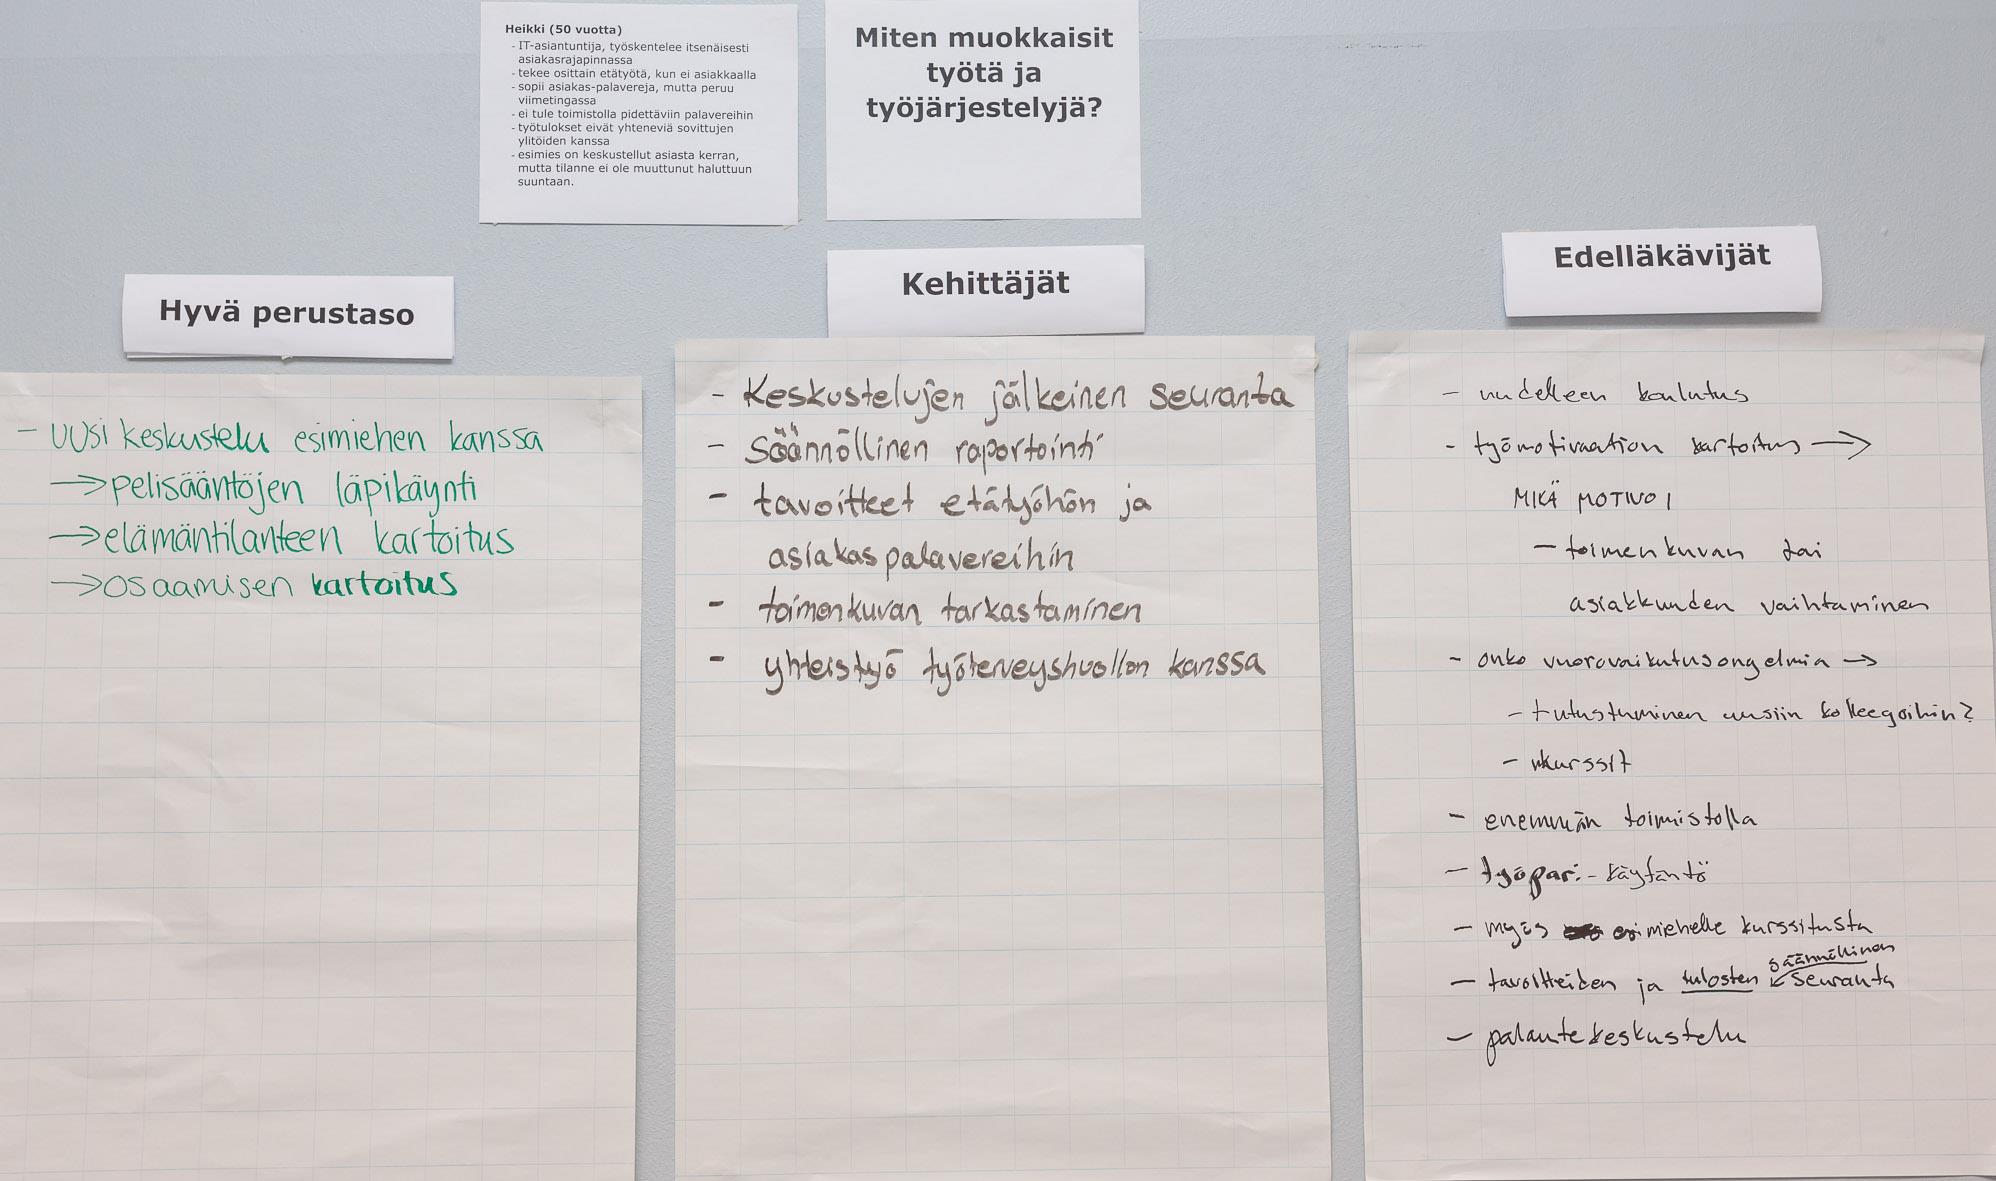 Heikki (50 vuotta)
- IT-asiantuntija, työskentelee itsenäisesti
asiakasrajapinnassa
- tekee osittain etätyötä, kun ei asiakkaalla
- sopii asiakas-palavereja, mutta peruu
viimetingassa
- ei tule toimistolla pidettäviin palavereihin
- työtulokset eivät yhteneviä sovittujen
ylitöiden kanssa
- esimies on keskustellut asiasta kerran,
mutta tilanne ei ole muuttunut haluttuun
suuntaan.
Miten muokkaisit
työtä ja
työjärjestelyjä?
Hyvä perustaso
- uusi keskustelu esimiehen kanssa
→ pelisääntöjen läpikäynti
→ elämäntilanteen kartoitus
→ osaamisen kartoitus
Kehittäjät
- Keskustelujen jälkeinen seuranta
- Säännöllinen raportointi
- tavoitteet etätyöhön ja
asiakaspalavereihin
- toimenkuvan tarkastaminen
- yhteistyö työterveyshuollon kanssa
Edelläkävijät
- uudelleen koulutus
- työmotivaation kartoitus →
MIKÄ MOTIVOI
- toimenkuvan tai
asiakkuuden vaihtaminen
- onko vuorovaikutusongelmia →
- tutustuminen uusiin kolleegoihin?
- kurssit
- enemmän toimistolla
- työpari - käytäntö
- myös esimiehelle kurssitusta
- tavoitteiden ja tulosten säännöllinen seuranta
- palautekeskustelu